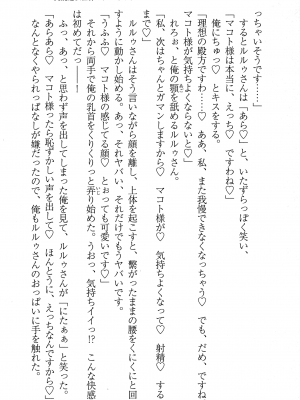 っちゃいそうです……」
するとルルゥさんは「あら♡」と、いたずらっぽく笑い、
「マコト様は本当に、えっち♡　ですわね♡」
俺にちゅっ♡　とキスをする。
「理想の殿方ですわ……♡　ああ、私、また我慢できなくなっちゃう♡　でも、だめ、ですね
マコト様が気持ちよくならないと♡」
れろぉ、と俺の顎を舐めるルルゥさん。
「私、次はちゃんとガマンしますから♡　マコト様が♡　気持ちよくなって♡　射精♡　する
まで♡」
ルルゥさんはそう言いながら顔を離し、上体を起こすと、繋がったままの腰をくにくにと回
すように動かし始める。あっ、それヤバい、それだけでもうヤバいです。
「うふふ♡　マコト様の感じてる顔♡　とおっても可愛いです♡」
それから両手で俺の乳首をくりくりっと弄り始めた。うおっ、気持ちイイっ！？　こんな快感
は初めてだっ……！
ふっ、あっ、と思わず声を出してしまった俺を見て、ルルゥさんが「にたぁぁ」と笑った。
「あらあら♡　マコト様ったら恥ずかしい声を出して♡　ほんとうに、えっちなんですから♡」
なんとなくやられっぱなしが嫌だったので、俺もルルゥさんのおっぱいに手を触れた。